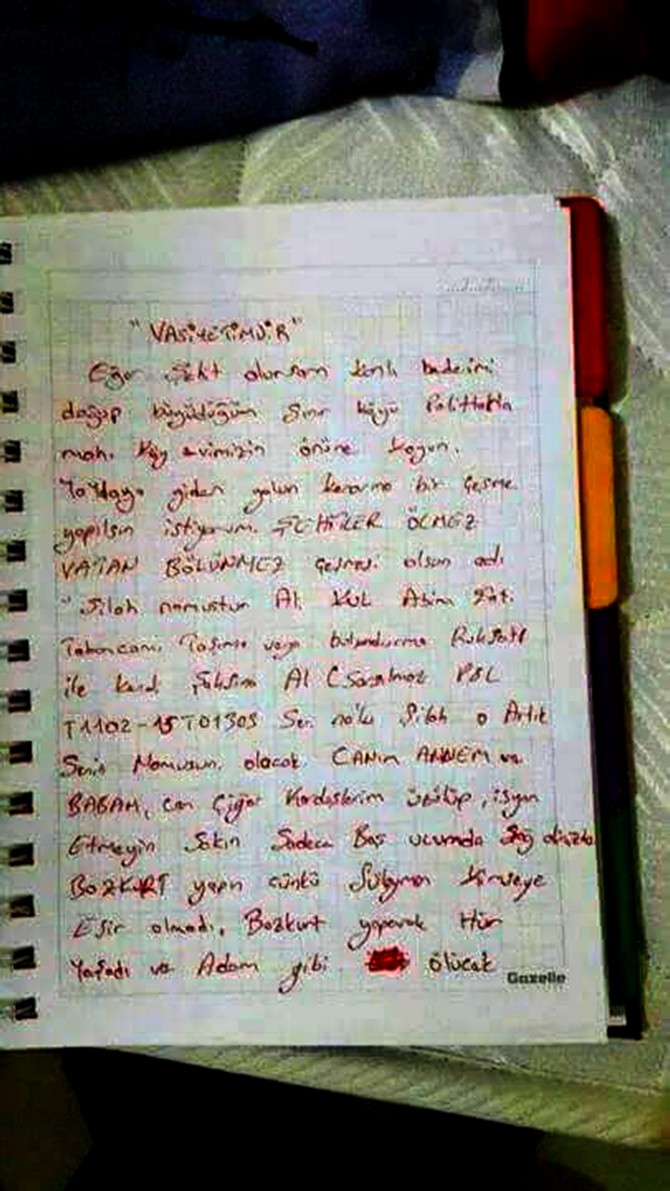 "VASİYETİMDİR"
Eğer Şehit olursam kanlı bedenimi
doğup büyüdüğüm Sınır köyü
mah. Köy evimizin önüne koyun.
Yaylaya giden yolun kenarına bir Çeşme
yapılsın istiyorum. ŞEHİTLER ÖLMEZ
VATAN BÖLÜNMEZ Çeşmesi olsun adı
"Silah namustur Al. KUL Abim
Tabancamı Taşıma veya bulundurma Ruhsatı
ile Kendi Al (Sarsılmaz
T1102-15T01305 Seri no'lu Silah o Artık
Senin Namusun. olacak. CANIM ANNEM ve
BABAM, Can Ciğer Kardaşlarım üzülüp, isyan
Etmeyin Sakın Sadece Baş ucumda
BOZKURT yapın çünkü Süleyman Kimseye
Esir olmadı, Bozkurt yaparak Hür
Yaşadı ve Adam gibi ölücek
Gazelle